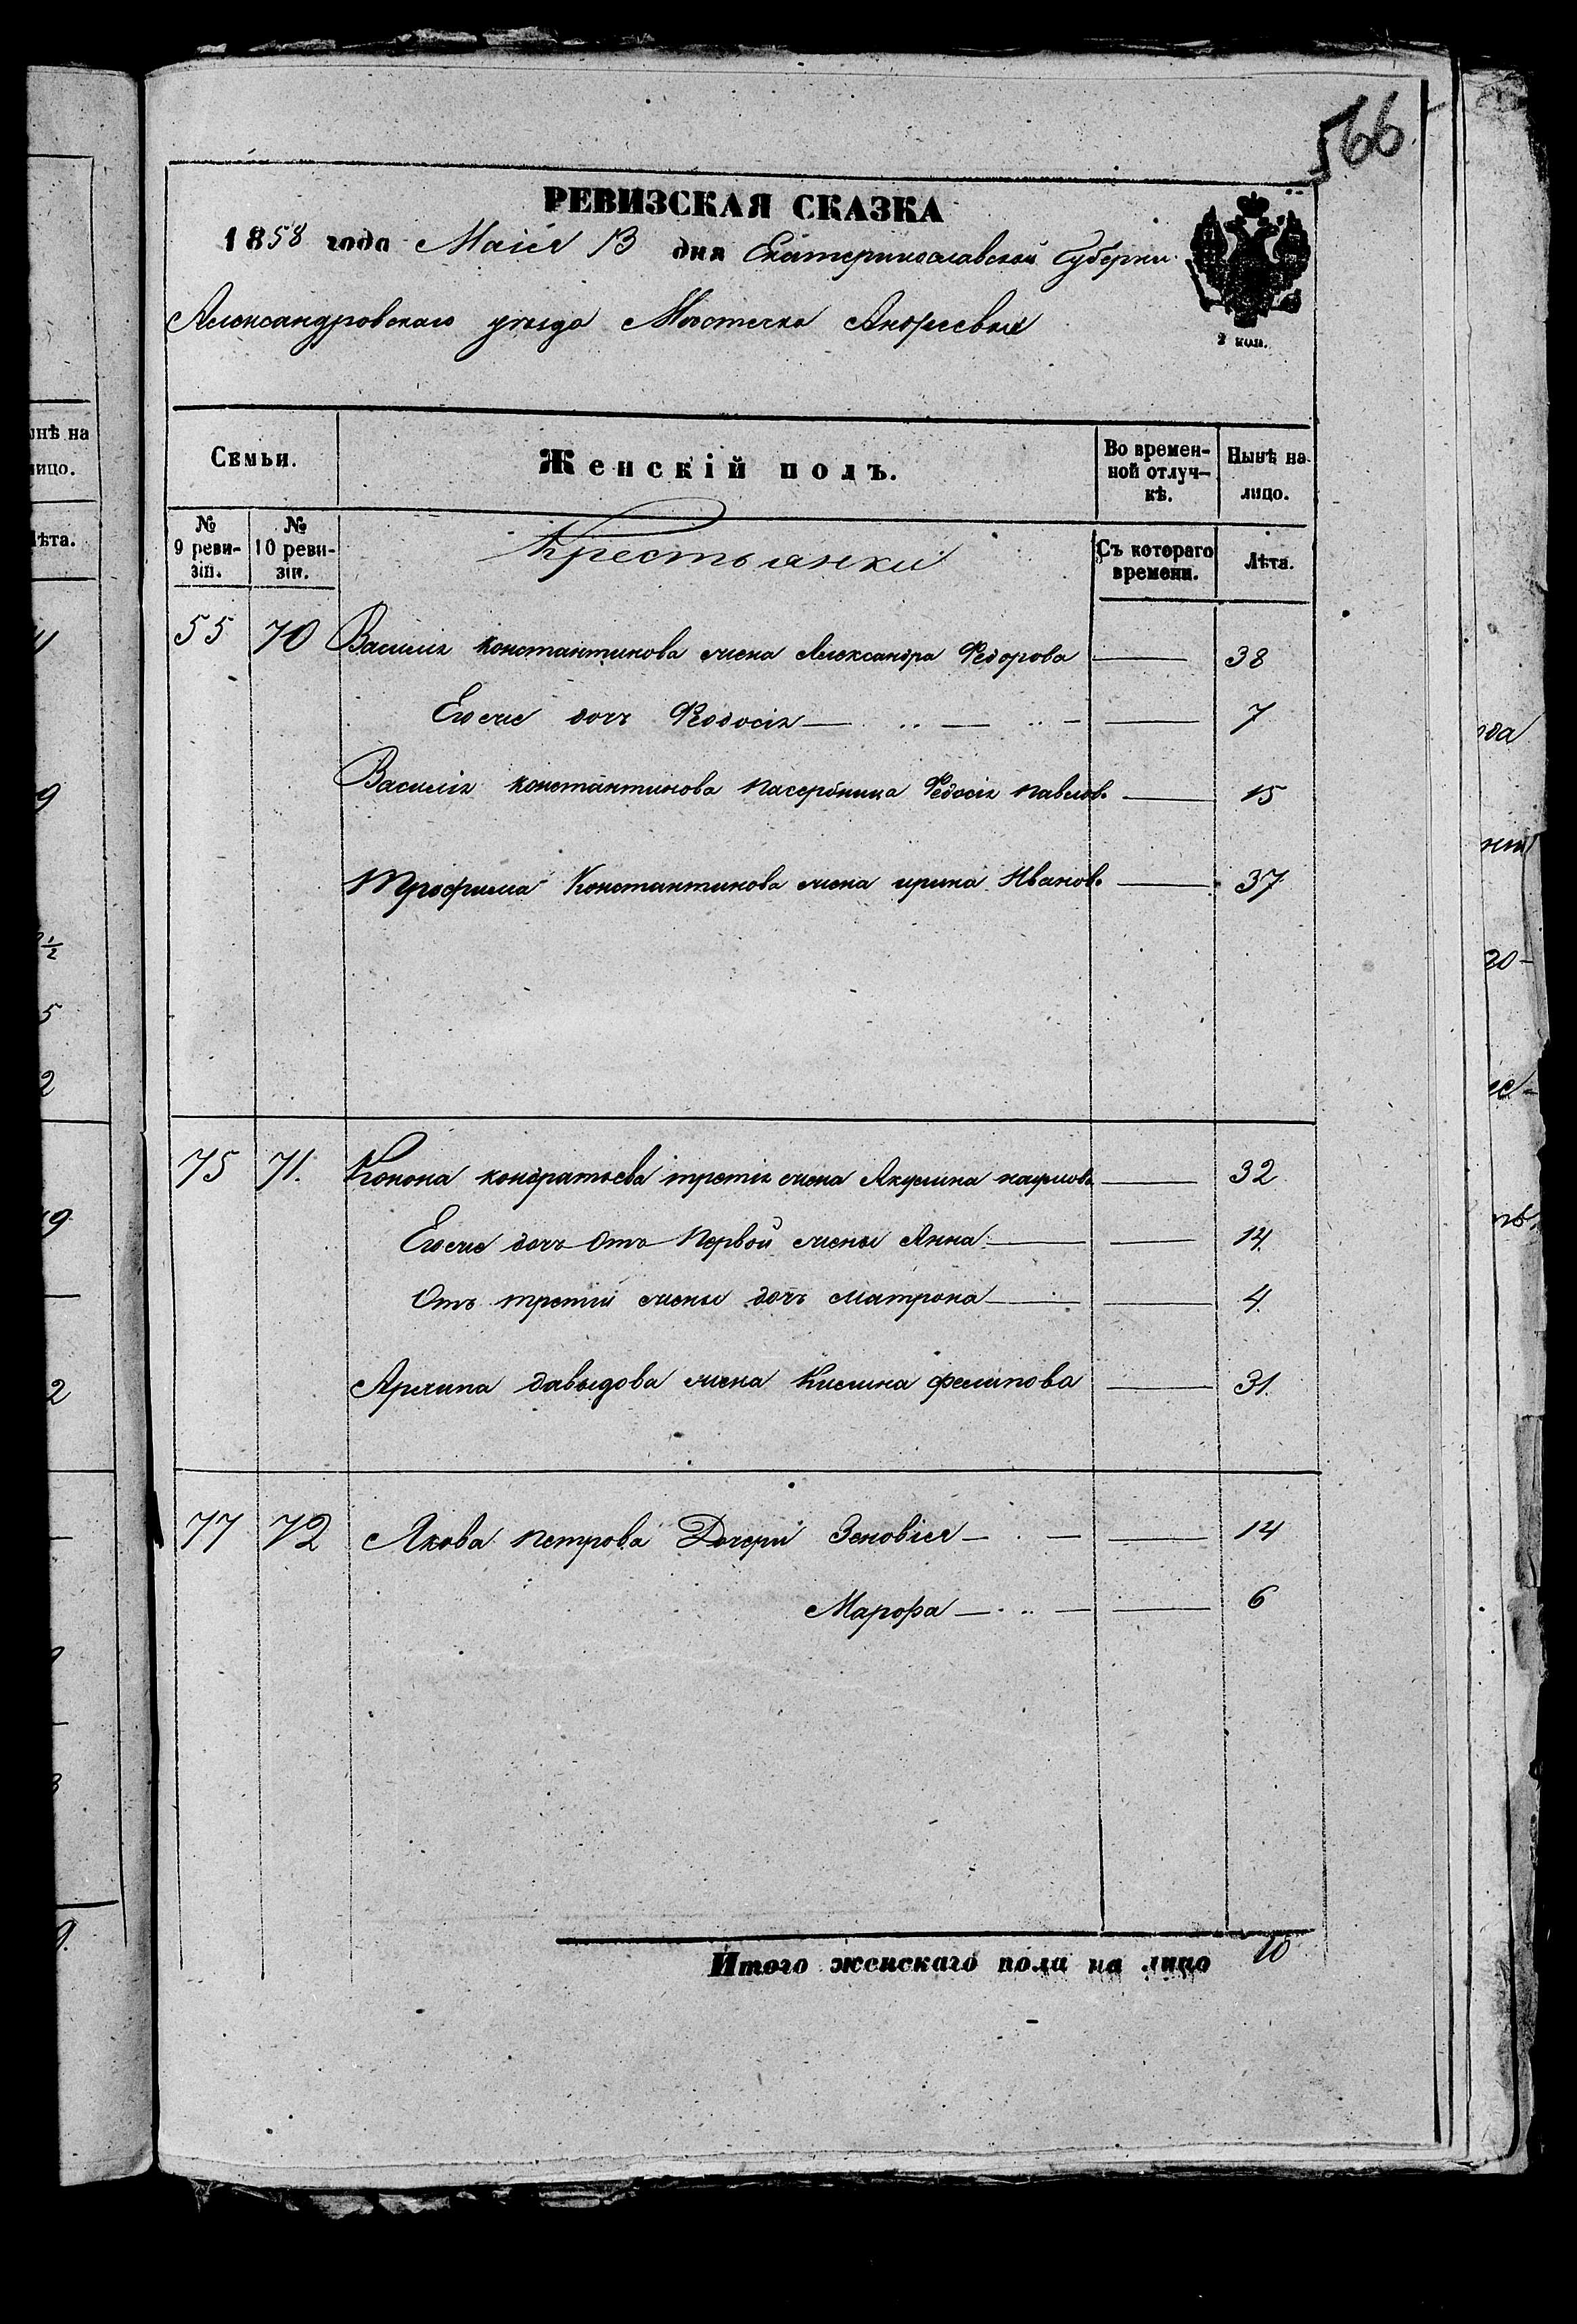 566
РЕВИЗСКАЯ СКАЗКА
1858 года Маія 13 дня Екатеринославской Губерни
Александровскаго уезда Местечка Андреевки
2 коп.
Семьи. Женскій полъ. Во времен-ной отлуч-кѣ. Нынѣ на-лицо.
№ 9 реви-зіи. № 10 реви-зіи. Крестьянки Съ котораго времени. Лѣта.
55 70 Василія константинова жена Александра Федорова — 38
Егоже дочь Феодосія — 7
Василія константинова пасербница Федосія павлов. — 15
Трофима Константинова жена ирина Иванов. — 37
75 71. Конона кондратьева третія жена Акулина карпова — 32
Егоже дочь Отъ Первой жены Анна — 14.
Отъ третій жены дочь Матрона — 4.
Архипа давыдова жена Килина филипова — 31.
77 72 Якова петрова Дочери Зеновія — 14
Марфа — 6
Итого женскаго пола на лицо 10